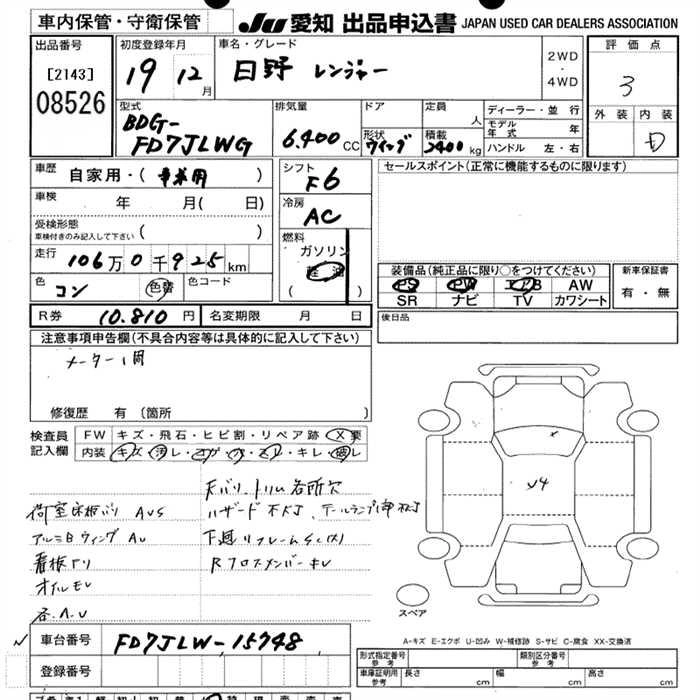 車内保管・守衛保管
JU 愛知 出品申込書 JAPAN USED CAR DEALERS ASSOCIATION
出品番号
[2143]
08526
初度登録年月
19 12月
車名・グレード
日野 レンジャー
2WD
・
4WD
評価点
3
外装 内装
D
型式
BDG-
FD7JLWG
排気量
6,400 CC
ドア
形状
ウイング
定員
人
積載
2400 kg
ディーラー・並行
モデル年式 年
ハンドル 左・右
車歴
自家用・( 事業用 )
車検
年 月( 日)
受検形態
車検付きのみ記入して下さい ( )
走行
106万0千925km
色
コン
色替
色コード
シフト
F6
冷房
AC
燃料
ガソリン
軽油
( )
セールスポイント(正常に機能するものに限ります)
装備品(純正品に限り○をつけてください)
PS PW エアB AW
SR ナビ TV カワシート
新車保証書
有・無
R券 10.810円
名変期限 月 日
後日品
注意事項申告欄(不具合内容等は具体的に記入して下さい)
メーター1周
修復歴 有 (箇所 )
検査員
記入欄
FW キズ・飛石・ヒビ割・リペア跡 X要
内装 キズ・汚レ・コゲ・穴・スレ・キレ・破レ
荷室床板バリ AUS
アルミBウイング AU
看板トリ
オイルモレ
各A.U
天バリ、トリム各所欠
ハザード不灯、テールランプ1部不灯
下廻りフレームSC(大)
Rクロスメンバーキレ
U4
スペア
A-キズ E-エクボ U-凹み W-補修跡 S-サビ C-腐食 XX-交換済
車台番号 FD7JLW-15748
登録番号
形式指定番号
参考
類別区分番号
参考
車庫証明用
参考
長さ cm
幅 cm
高さ cm